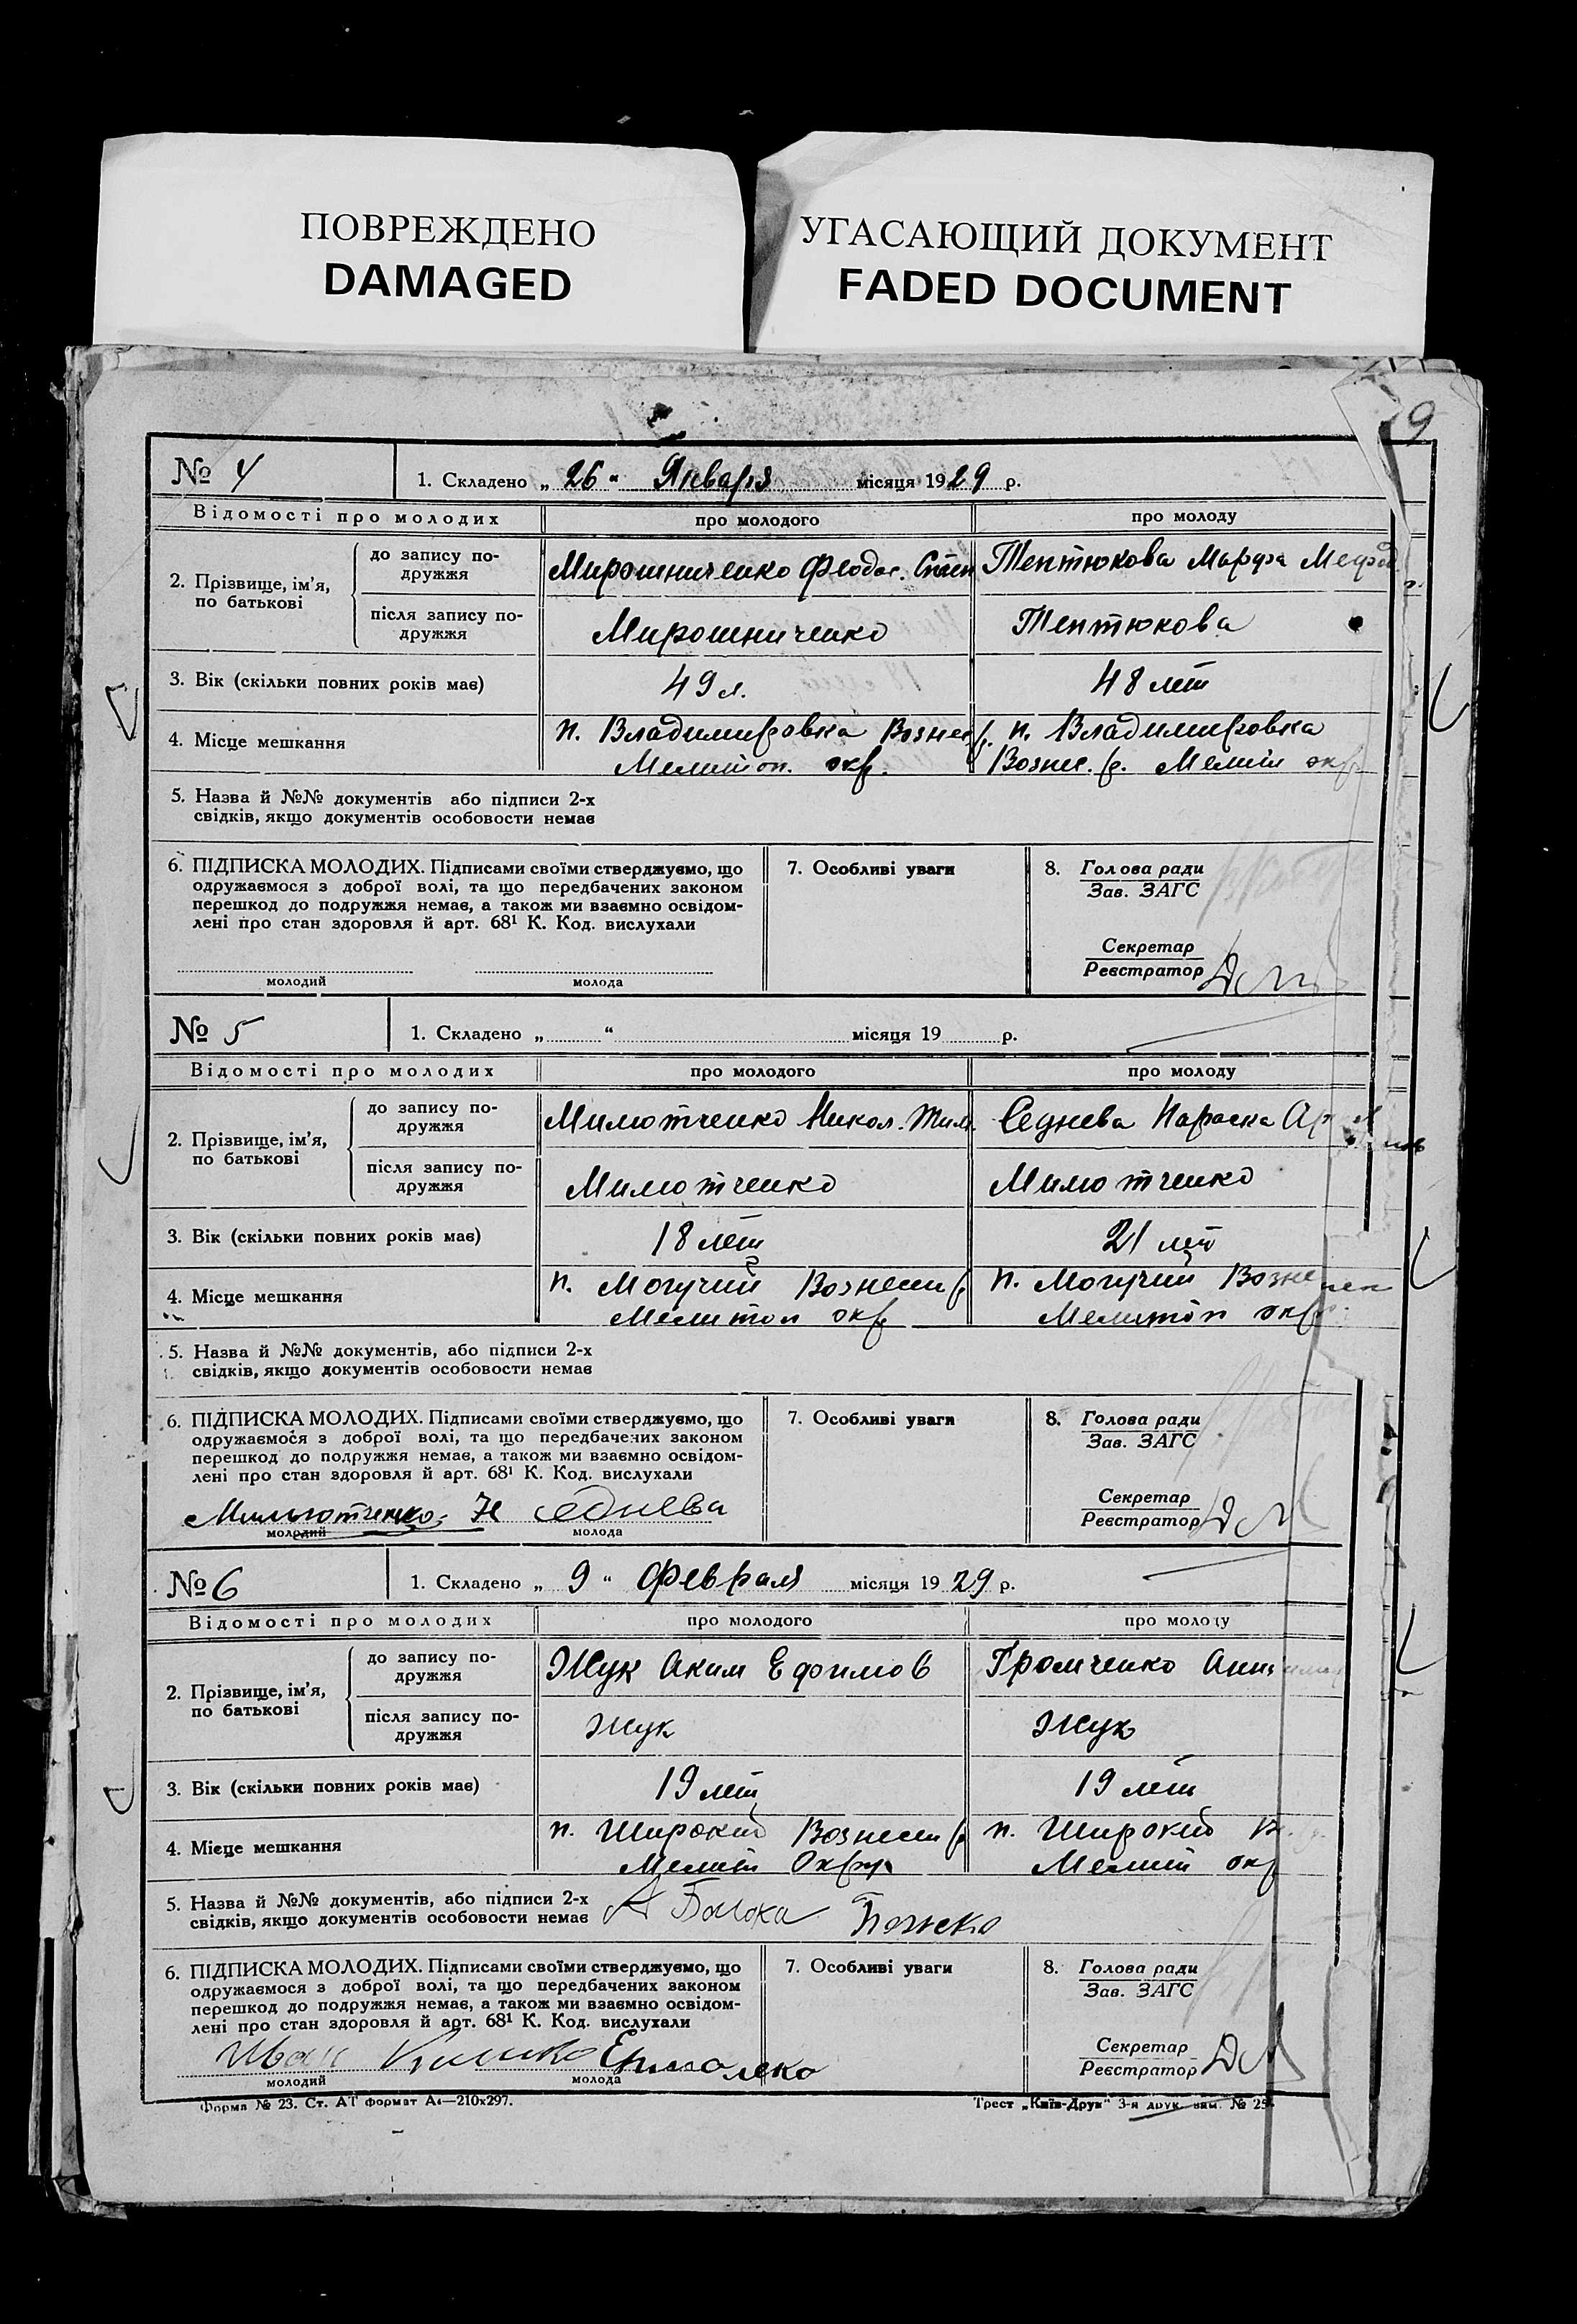 ПОВРЕЖДЕНО
DAMAGED
УГАСАЮЩИЙ ДОКУМЕНТ
FADED DOCUMENT
9
№ 4 1. Складено „ 26 “ Января місяця 1929 р.
Відомості про молодих про молодого про молоду
2. Прізвище, ім’я, по батькові
до запису подружжя Мирошниченко Феодос. Степ Тептюкова Марфа Мефод
після запису подружжя Мирошниченко Тептюкова
3. Вік (скільки повних років має) 49 л. 48 лет
4. Місце мешкання п. Владимировка Вознес р. п. Владимировка
Мелитоп. окр. Вознес. р. Мелит окр
5. Назва й №№ документів або підписи 2-х
свідків, якщо документів особовости немає
6. ПІДПИСКА МОЛОДИХ. Підписами своїми стверджуємо, що
одружаємося з доброї волі, та що передбачених законом
перешкод до подружжя немає, а також ми взаємно освідом-
лені про стан здоровля й арт. 68¹ К. Код. вислухали
молодий молода
7. Особливі уваги
8. Голова ради
Зав. ЗАГС
Секретар
Реєстратор
№ 5 1. Складено „ “ місяця 19 р.
Відомості про молодих про молодого про молоду
2. Прізвище, ім’я, по батькові
до запису подружжя Милютченко Никол. Тим. Седнева Параска
після запису подружжя Милютченко Милютченко
3. Вік (скільки повних років має) 18 лет 21 лет
4. Місце мешкання п. Могучий Вознесен р п. Могучий Вознесен
Мелитоп окр Мелитоп окр
5. Назва й №№ документів, або підписи 2-х
свідків, якщо документів особовости немає
6. ПІДПИСКА МОЛОДИХ. Підписами своїми стверджуємо, що
одружаємося з доброї волі, та що передбачених законом
перешкод до подружжя немає, а також ми взаємно освідом-
лені про стан здоровля й арт. 68¹ К. Код. вислухали
Мильютченко Н Седнева
молодий молода
7. Особливі уваги
8. Голова ради
Зав. ЗАГС
Секретар
Реєстратор
№ 6 1. Складено „ 9 “ Февраля місяця 1929 р.
Відомості про молодих про молодого про молоду
2. Прізвище, ім’я, по батькові
до запису подружжя Жук Аким Ефимов Громченко
після запису подружжя Жук Жук
3. Вік (скільки повних років має) 19 лет 19 лет
4. Місце мешкання п. Широкий Вознесен р п. Широкий
Мелит Округ Мелит окр
5. Назва й №№ документів, або підписи 2-х
свідків, якщо документів особовости немає
6. ПІДПИСКА МОЛОДИХ. Підписами своїми стверджуємо, що
одружаємося з доброї волі, та що передбачених законом
перешкод до подружжя немає, а також ми взаємно освідом-
лені про стан здоровля й арт. 68¹ К. Код. вислухали
Иван
молодий молода
7. Особливі уваги
8. Голова ради
Зав. ЗАГС
Секретар
Реєстратор
Форма № 23. Ст. АТ формат А4—210х297. Трест „Київ-Друк“ 3-я друк. зам. № 25